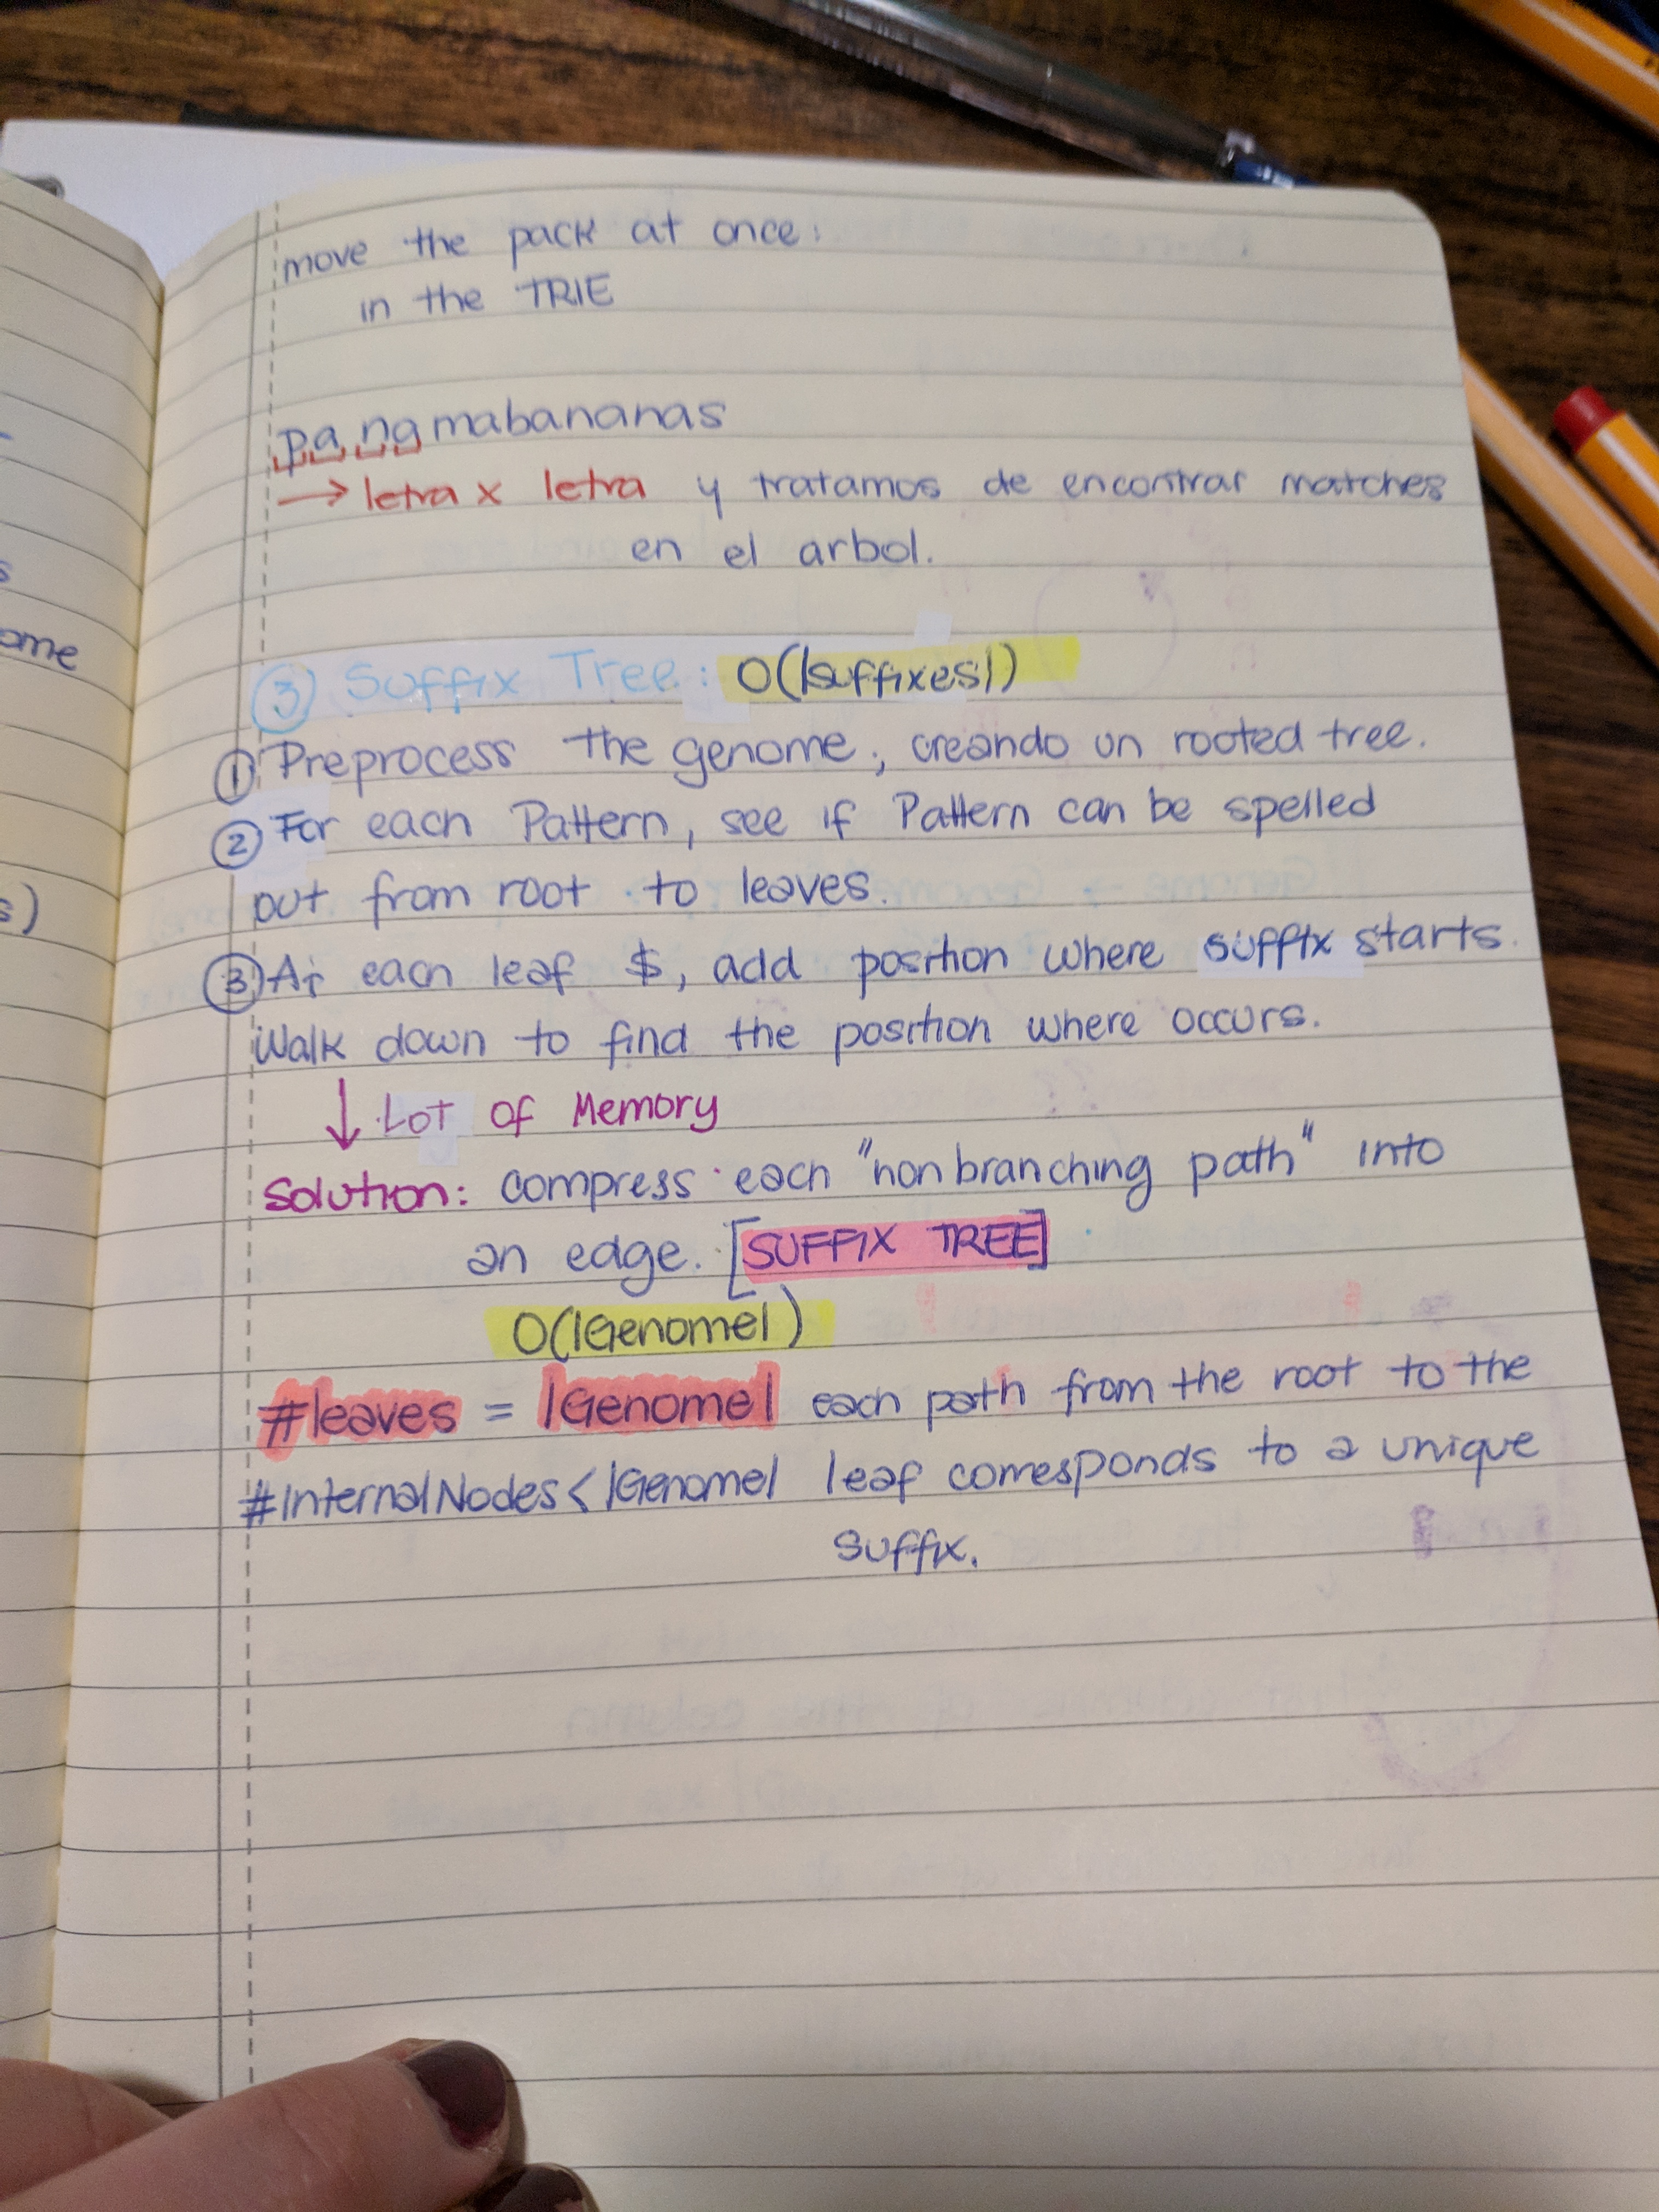 move the pack at once:
in the TRIE
pangmabananas
→ letra x letra y tratamos de encontrar matches
en el arbol.
③ Suffix Tree: O(|suffixes|)
① Preprocess the genome, creando un rooted tree.
② For each Pattern, see if Pattern can be spelled
out from root to leaves.
③ At each leaf $, add position where suffix starts.
Walk down to find the position where occurs.
↓ Lot of Memory
Solution: compress each "nonbranching path" into
an edge. [SUFFIX TREE]
O(|Genome|)
#leaves = |Genome| each path from the root to the
#InternalNodes < |Genome| leaf corresponds to a unique
suffix.
ome
s)